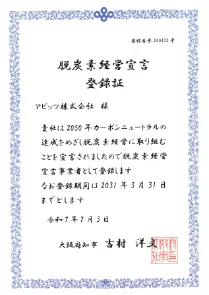 脱炭素経営宣言
登録証
アビッツ株式会社 様
貴社は2050年カーボンニュートラルの
達成をめざし脱炭素経営に取り組む
ことを宣言されましたので脱炭素経営
宣言事業者として登録します
なお登録期間は2031年3月31日
までとします
令和7年7月3日
大阪府知事 吉村 洋文